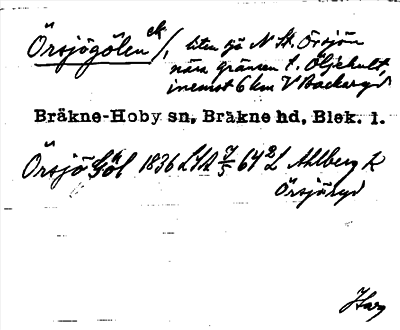 Örsjögölen ek/, liten sjö N St. Örsjön
nära gränsen t. Öljehult,
inemot 6 km V Backaryd
Bräkne-Hoby sn, Bräkne hd, Blek. l.
Örsjö Göl 1836 LSA 7/5 64 2 L Ahlberg k
Örsjöryd